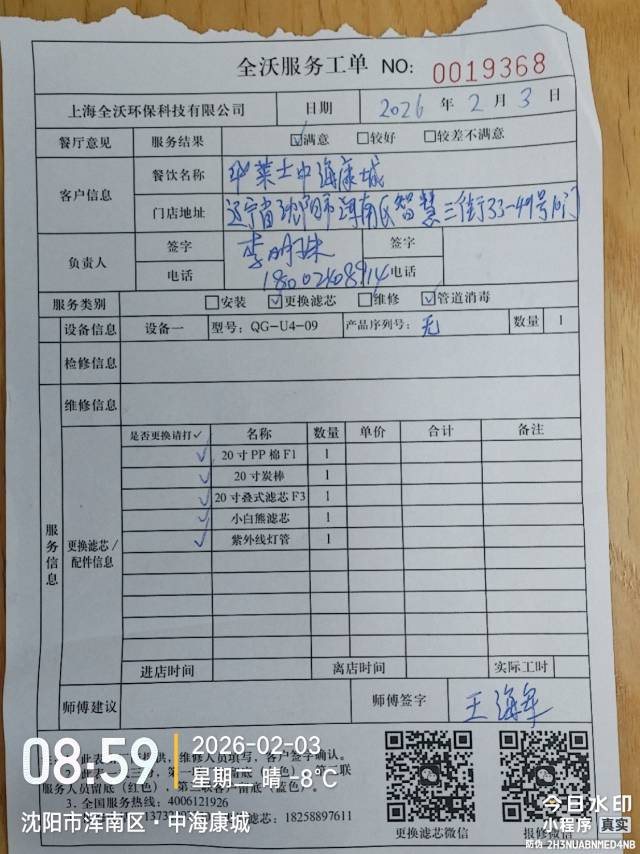 全沃服务工单 NO: 0019368
上海全沃环保科技有限公司 日期 2026 年 2 月 3 日
餐厅意见 服务结果 ☑满意 □较好 □较差不满意
客户信息 餐饮名称 华莱士中海康城
门店地址 辽宁省沈阳市浑南区智慧三街33-49号10门
负责人 签字 李明珠 签字
电话 18002408914 电话
服务类别 □安装 ☑更换滤芯 □维修 ☑管道消毒
设备信息 设备一 型号: QG-U4-09 产品序列号: 无 数量 1
检修信息
维修信息
服务信息
更换滤芯/配件信息
是否更换请打✓ 名称 数量 单价 合计 备注
✓ 20寸PP棉F1 1
✓ 20寸炭棒 1
✓ 20寸叠式滤芯F3 1
✓ 小白熊滤芯 1
✓ 紫外线灯管 1
进店时间 离店时间 实际工时
师傅建议 师傅签字 王海军
维修人员填写,客户签字确认。
服务人员留底(红色)
3.全国服务热线: 4006121926
18258897611
更换滤芯微信 报修微信
08:59
2026-02-03
星期二 晴 -8℃
沈阳市浑南区·中海康城
今日水印
小程序 真实
防伪 2H3NUABNMED4NB